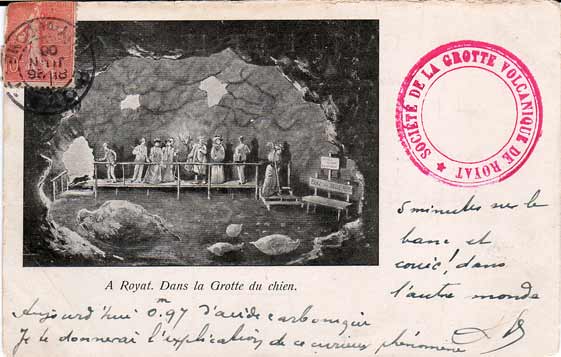 SOCIÉTÉ DE LA GROTTE VOLCANIQUE DE ROYAT
A Royat. Dans la Grotte du chien.
5 minutes sur le
banc et
couic! dans
l'autre monde
Aujourd'hui 0m.97 d'acide carbonique
Je te donnerai l'explication de ce curieux phénomène